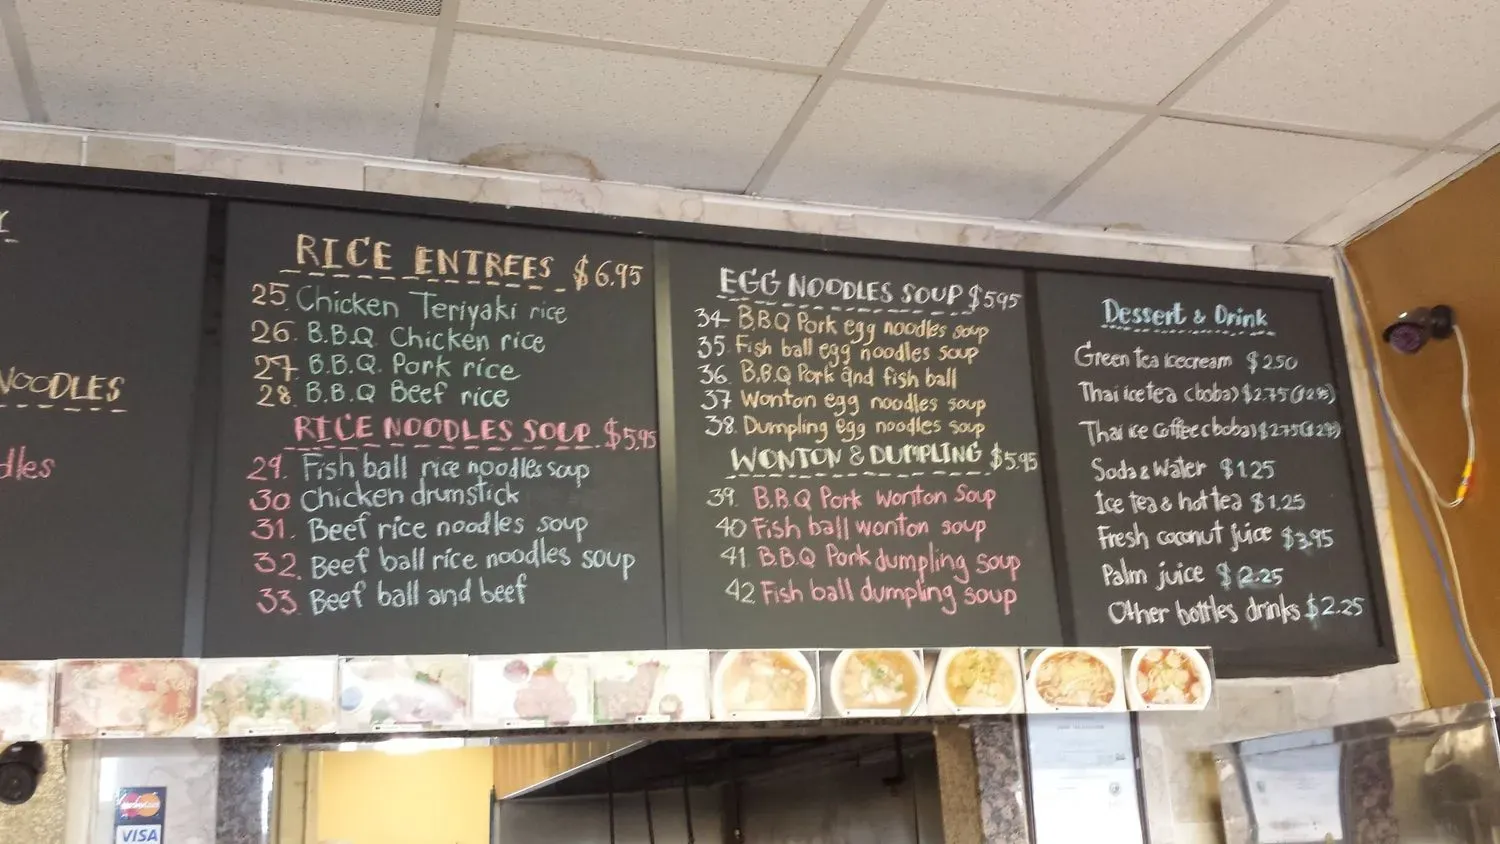 NOODLES
dles
RICE ENTREES $6.95
25. Chicken Teriyaki rice
26. B.B.Q Chicken rice
27. B.B.Q. Pork rice
28. B.B.Q Beef rice
RICE NOODLES SOUP $5.95
29. Fish ball rice noodles soup
30 Chicken drumstick
31. Beef rice noodles soup
32. Beef ball rice noodles soup
33. Beef ball and beef
EGG NOODLES SOUP $5.95
34- B.B.Q Pork egg noodles soup
35. Fish ball egg noodles soup
36. B.B.Q Pork and fish ball
37. Wonton egg noodles soup
38. Dumpling egg noodles soup
WONTON & DUMPLING $5.95
39. B.B.Q Pork wonton Soup
40 Fish ball wonton soup
41. B.B.Q Pork dumpling soup
42 Fish ball dumpling soup
Dessert & Drink
Green tea icecream $2.50
Thai ice tea (boba) $2.75
Thai ice Coffee (boba) $2.75
Soda & Water $1.25
Ice tea & hot tea $1.25
Fresh coconut juice $3.95
Palm juice $2.25
Other bottles drinks $2.25
MasterCard
VISA